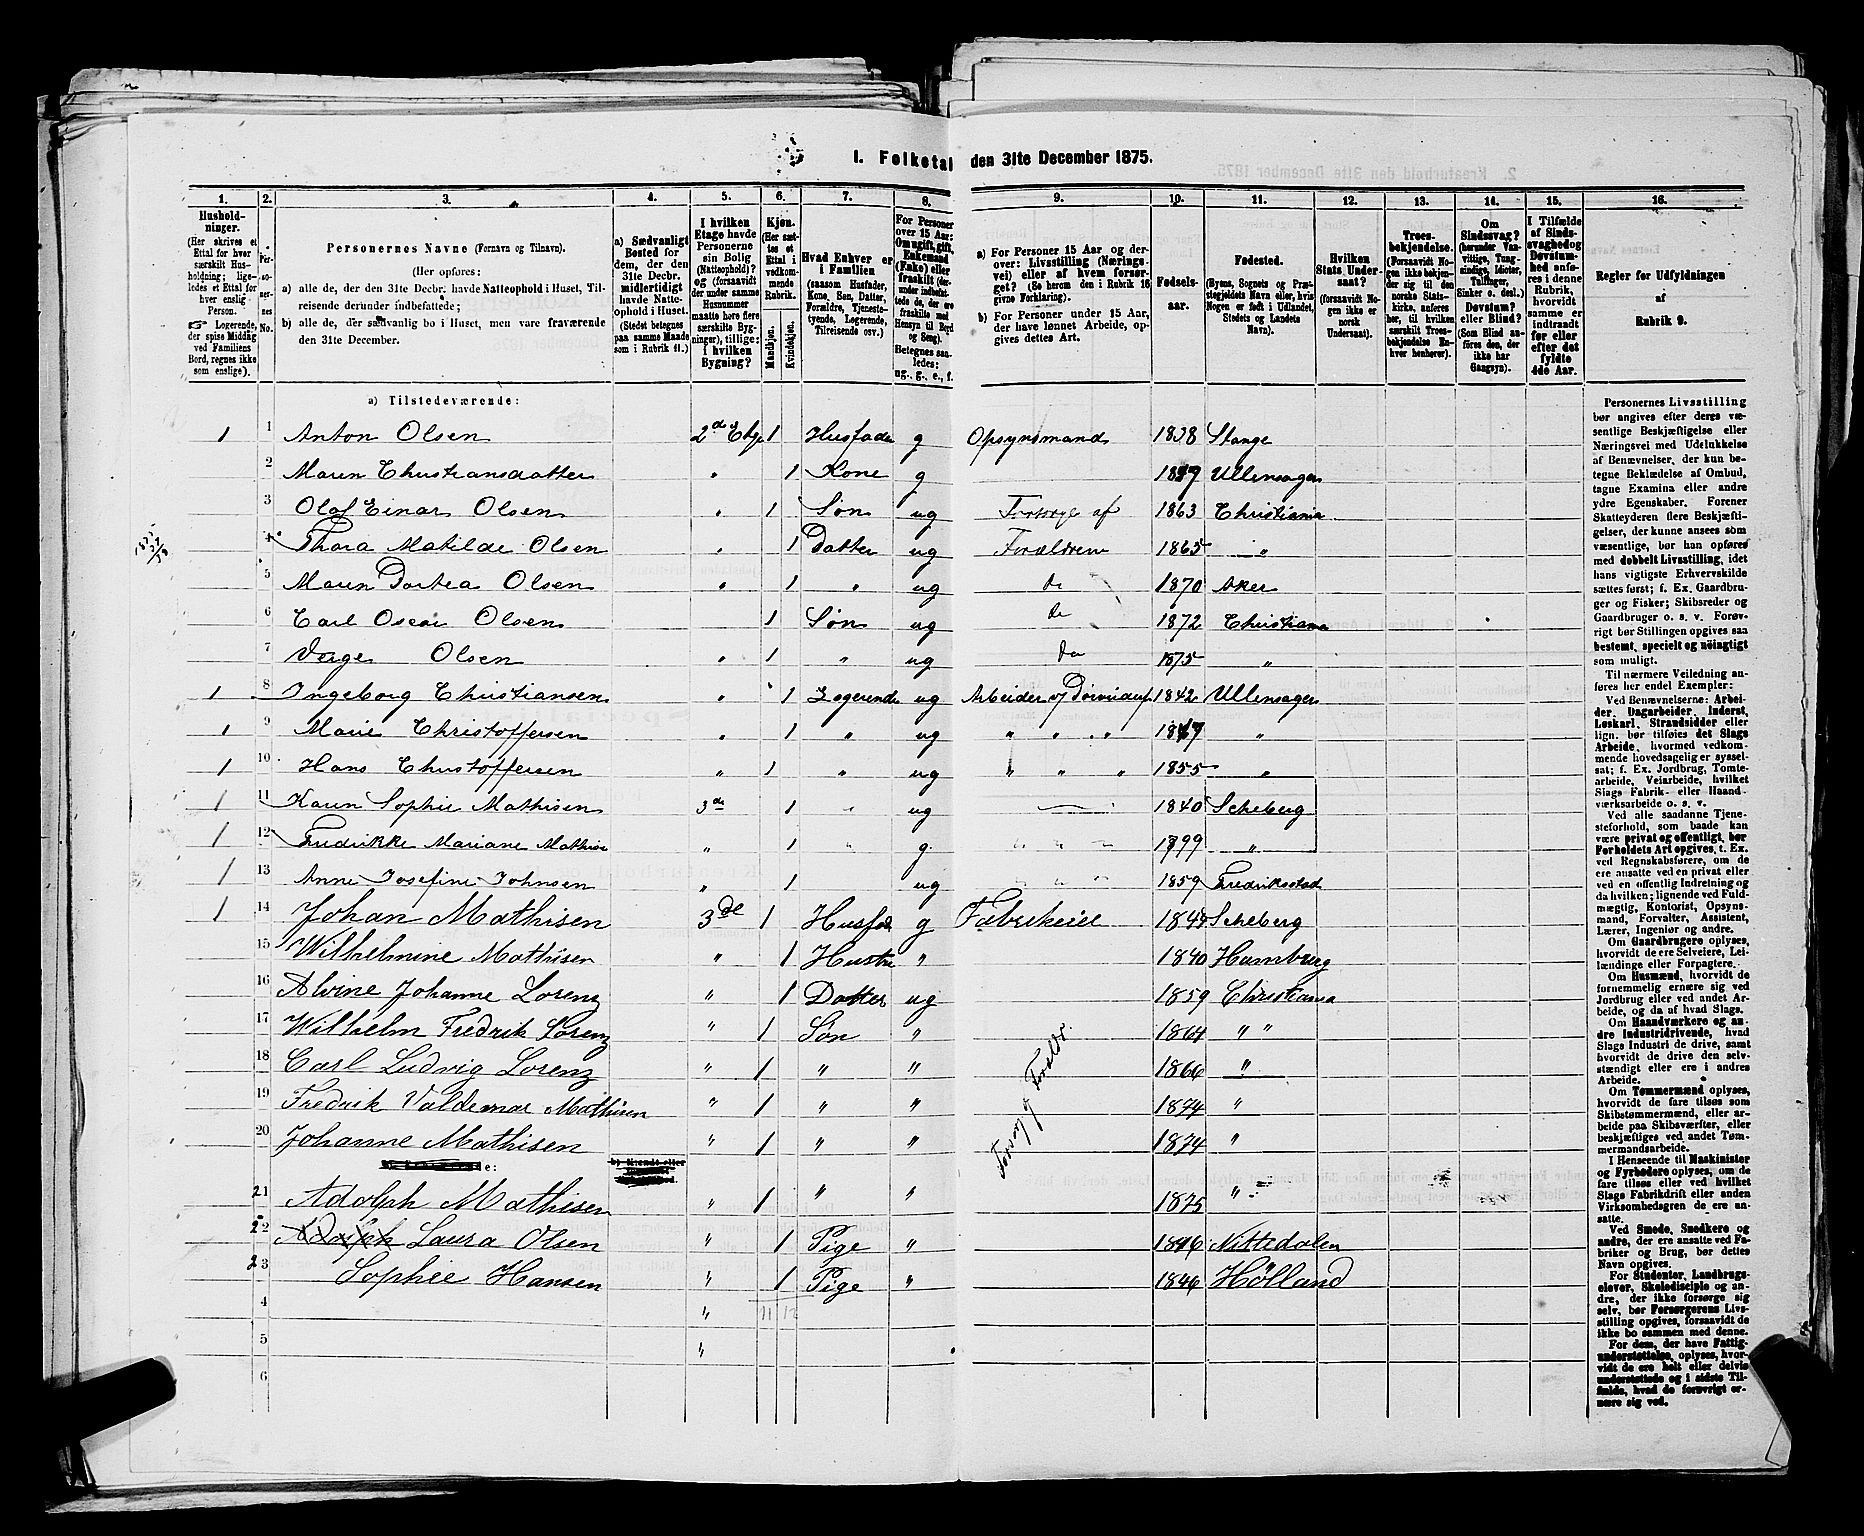 I. Folketal den 31te December 1875.
1. 2. 3. 4. 5. 6. 7. 8. 9. 10. 11. 12. 13. 14. 15. 16.
Husholdninger. (Her skrives et Ettal for hver særskilt Husholdning; ligeledes et Ettal for hver enslig Person. Logerende, der spise Middag ved Familiens Bord, regnes ikke som enslige).
Personernes No.
Personernes Navne (Fornavn og Tilnavn).
(Her opføres:
a) alle de, der den 31te Decbr. havde Natteophold i Huset, Tilreisende derunder indbefattede;
b) alle de, der sædvanlig bo i Huset, men vare fraværende den 31te December.
a) Sædvanligt Bosted for dem, der den 31te Decbr. midlertidigt havde Natteophold i Huset. (Stedet betegnes paa samme Maade som i Rubrik 11.)
I hvilken Etage havde Personerne sin Bolig (Natteophold)? og (forsaavidt der under samme Husnummer maatte høre flere særskilte Bygninger), tillige: i hvilken Bygning?
Kjøn. (Her sættes et Ettal i vedkommende Rubrik. Mandkjøn. Kvindekjøn.
Hvad Enhver er i Familien (saasom Husfader, Kone, Søn, Datter, Forældre, Tjenestetyende, Logerende, Tilreisende osv.)
For Personer over 15 Aar: Om ugift, gift, Enkemand (Enke) eller fraskilt (derunder indbefattede de, der ere fraskilte med Hensyn til Bord og Seng). Betegnes saaledes: ug., g., e., f.
a) For Personer 15 Aar og derover: Livsstilling (Næringsvei) eller af hvem forsørget? (Se herom den i Rubrik 16 givne Forklaring).
b) For Personer under 15 Aar, der have lønnet Arbeide, opgives dettes Art.
Fødselsaar.
Fødested. (Byens, Sognets og Præstegjeldets Navn eller, hvis Nogen er født i Udlandet, Stedets og Landets Navn).
Hvilken Stats Undersaat? (forsaavidt Nogen ikke er norsk Undersaat).
Troesbekjendelse. (Forsaavidt Nogen ikke bekjender sig til den norske Statskirke, anføres her, til hvilken særskilt Troesbekjendelse Enhver henhører).
Om Sindssvag? (herunder Vanvittige, Tungsindige, Idioter, Tullinger, Sinker o. desl.) Døvstum? eller Blind? (Som Blind anføres den, der ikke har Gangsyn).
I Tilfælde af Sindssvaghed og Døvstumhed anføres i denne Rubrik, hvorvidt samme er indtraadt før eller efter det fyldte 4de Aar.
Regler for Udfyldningen af Rubrik 9.
a) Tilstedeværende:
1 1 Anton Olsen 2den Etge 1 Husfader g Opsynsmand 1838 Stange
2 Maren Christiansdatter " 1 Kone g Ullensager
3 Olaf Einar Olsen " 1 Søn ug Forsørge af 1863 Christiania
4 Thora Matilde Olsen " 1 Datter ug Forældrene 1865 "
5 Maren Dortea Olsen " 1 " ug do 1870 Aker
6 Carl Oscar Olsen 1 Søn ug do 1872 Christiania
7 Olsen " 1 " ug do 1875 "
1 8 Ingeborg Christiansen " 1 Logerende ug Arbeider 1842 Ullensager
1 9 Marie Christoffersen " 1 " ug " " " "
1 10 Hans Christoffersen " 1 " ug " " " 1855 "
1 11 Karen Sophie Mathisen 3de 1 " ug 1840 Scheberg
1 12 Fredrikke Mariane Mathise " 1 " g. " " " 1799 "
1 13 Anne Josefine Johnsen " 1 ug " " " 1859 Fredriksstad
1 14 Johan Mathisen 3de 1 Husfad g Fabrikeier Scheberg
15 Wilhelmine Mathisen " 1 Hustru " 1840 Hamburg
16 Alvine Johanne Lorenz " 1 Datter ug 1859 Christiania
17 Wilhelm Fredrik Lorenz " 1 Søn " 1864 " "
18 Carl Ludvig Lorenz " 1 " " 1866 "
19 Fredrik Valdemar Mathisen " 1 " " 1874 "
20 Johanne Mathisen " 1 " " 1874 "
Forsørg af Foreldr.
21 Adolph Mathisen " 1 " " 1875 "
22 Adolph Laura Olsen " 1 Pige " Nittedalen
23 Sophie Hansen " 1 Pige " 1846 Hølland
4 " 11 12
5 "
6
Personernes Livsstilling bør angives efter deres væsentlige Beskjæftigelse eller Næringsvei med Udelukkelse af Benævnelser, der kun betegne Beklædelse af Ombud, tagne Examina eller andre ydre Egenskaber. Forener Skatteyderen flere Beskjæftigelser, der kunne ansees som væsentlige, bør han opføres med dobbelt Livsstilling, idet hans vigtigste Erhvervskilde sættes først; f. Ex. Gaardbruger og Fisker; Skibsreder og Gaardbruger o. s. v. Forøvrigt bør Stillingen opgives saa bestemt, specielt og nöiagtigt som muligt.
Til nærmere Veiledning anføres her endel Exempler:
Ved Benævnelserne: Arbeider, Dagarbeider, Inderst, Løskarl, Strandsidder eller lign. bør tilføies det Slags Arbeide, hvormed vedkommende hovedsagelig er sysselsat; f. Ex. Jordbrug, Tomtearbeide, Veiarbeide, hvilket Slags Fabrik- eller Haandværksarbeide o. s. v.
Ved alle saadanne Tjenesteforhold, som baade kan være privat og offentligt, bør Forholdets Art opgives, t. Ex. ved Regnskabsførere, om de ere ansatte ved en privat eller ved en offentlig Indretning og da hvilken; lignende ved Fuldmægtig, Kontorist, Opsynsmand, Forvalter, Assistent, Lærer, Ingeniør og andre.
Om Gaardbrugere oplyses, hvorvidt de ere Selveiere, Leilændinge eller Forpagtere.
Om Husmænd, hvorvidt de fornemmelig ernære sig ved Jordbrug eller ved andet Arbeide, og da af hvad Slags.
Om Haandværkere og andre Industridrivende, hvad Slags Industri de drive, samt hvorvidt de drive den selvstændigt eller ere i andres Arbeide.
Om Tømmermænd oplyses, hvorvidt de fare tilsøs som Skibstømmermænd, eller arbeide paa Skibsværfter, eller beskjæftiges ved andet Tømmermandsarbeide.
I Henseende til Maskinister og Fyrbødere oplyses, om de fare tilsøs eller ved hvilket Slags Fabrikdrift eller anden Virksomhedsgren de ere ansatte.
Ved Smede, Snedkere og andre, der ere ansatte ved Fabriker og Brug, bør dettes Navn opgives.
For Studenter, Landbrugselever, Skoledisciple og andre, der ikke forsørge sig selv, bør Forsørgerens Livsstilling opgives, forsaavidt de ikke bo sammen med denne.
For dem, der have Fattigunderstøttelse, oplyses, hvorvidt de ere helt eller delvis understøttede og i sidste Tilfælde, hvad de forøvrigt ernære sig ved.